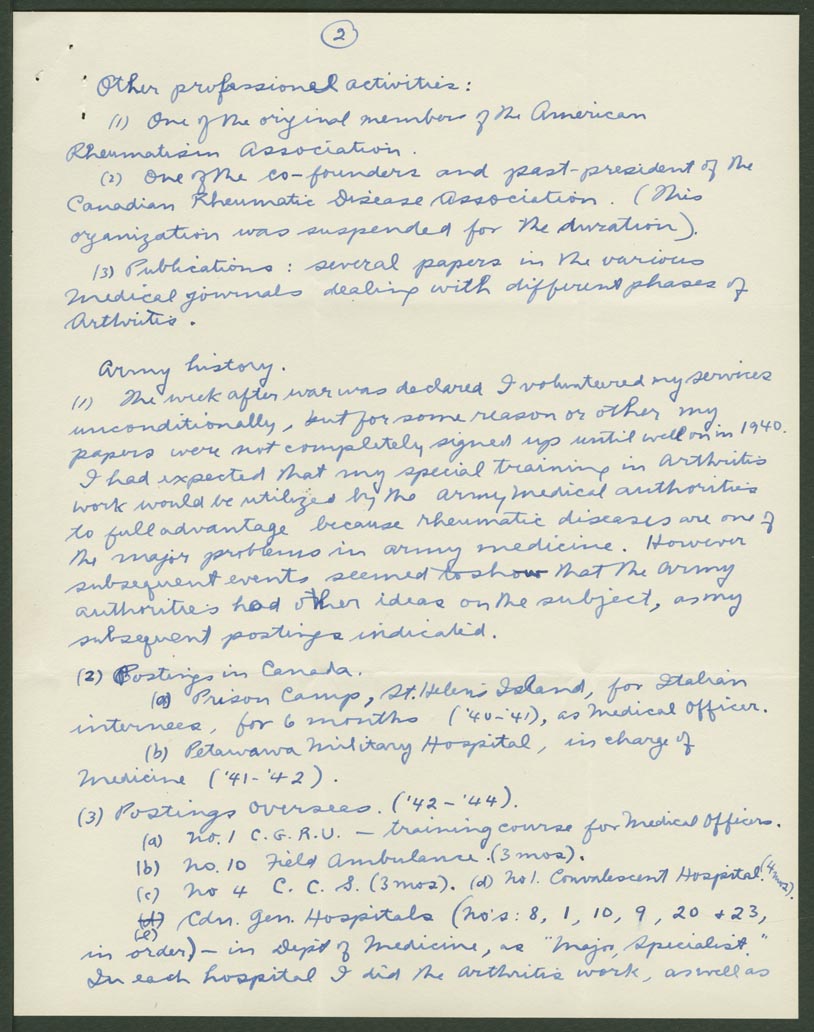 2
Other professional activities:
(1) One of the original members of the American
Rheumatism Association.
(2) One of the co-founders and past-president of the
Canadian Rheumatic Disease Association. (This
organization was suspended for the duration).
(3) Publications: several papers in the various
medical journals dealing with different phases of
Arthritis.
Army history.
(1) The week after war was declared I volunteered my services
unconditionally, but for some reason or other my
papers were not completely signed up until well on in 1940.
I had expected that my special training in Arthritis
work would be utilized by the army medical authorities
to full advantage because rheumatic diseases are one of
the major problems in army medicine. However
subsequent events seemed to show that the army
authorities had other ideas on the subject, as my
subsequent postings indicated.
(2) Postings in Canada.
(a) Prison Camp, St. Helen's Island, for Italian
internees, for 6 months ('40-'41), as Medical Officer.
(b) Petawawa Military Hospital, in charge of
Medicine ('41-'42).
(3) Postings overseas. ('42-'44).
(a) No. 1 C.G.R.U. - training course for Medical Officers.
(b) No. 10 Field Ambulance. (3 mos).
(c) No 4 C.C.S. (3 mos). (d) No 1. Convalescent Hospital. (4 mos).
(d) (e) Cdn. Gen. Hospitals (No's: 8, 1, 10, 9, 20 + 23,
in order) - in Dept of Medicine, as "Major, Specialist."
In each hospital I did the Arthritis work, as well as